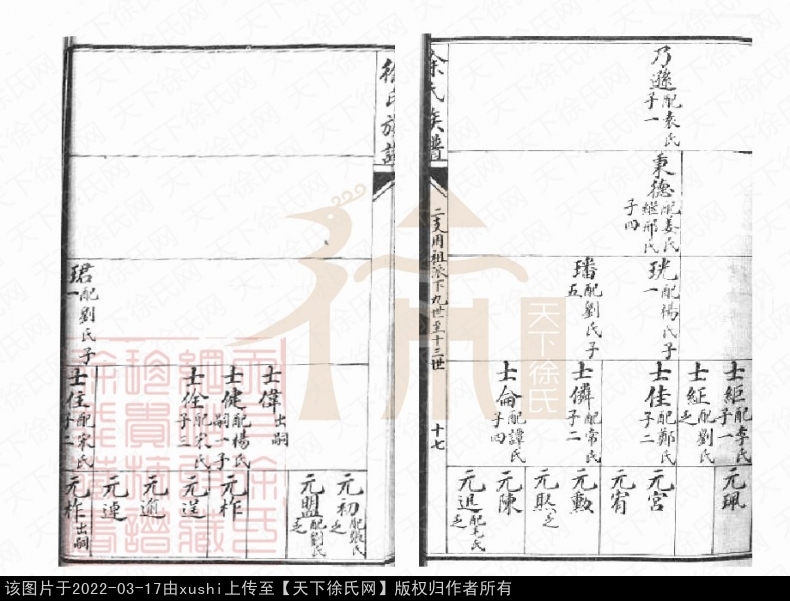 乃遜 配袁氏
子一
秉德 配姜氏
繼邢氏
子四
珖 配楊氏 子
一
璠 配劉氏 子
五
士鉅 配李氏
子一
士鉦 配劉氏
乏
士佳 配鄭氏
子二
士儕 配常氏
子二
士倫 配譚氏
子四
元珮
元宮
元宥
元勲
元馭 乏
元陳
元退 配尤氏
乏
徐氏族譜
二支用祖派下九世至十三世
十七
徐氏族譜
珺 配劉氏 子
一
士偉 出嗣
士健 配楊氏
嗣一子
士佺 配宋氏
子三
士住 配宋氏
子二
元初 配張氏
乏
元盟 配劉氏
乏
元柞
元送
元逾
元連
元柞 出嗣
天下徐氏
该图片于2022-03-17由xushi上传至【天下徐氏网】版权归作者所有